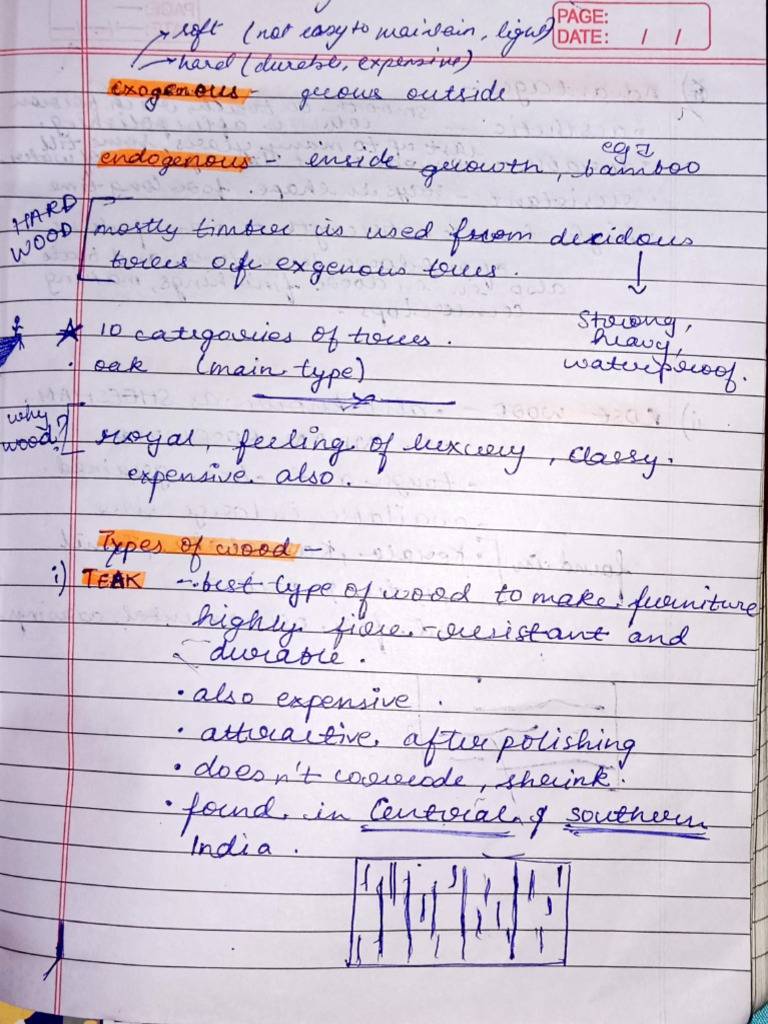 PAGE:
DATE: / /
soft (not easy to maintain, light)
hard (durable, expensive)
exogenous - grows outside
endogenous - enside growth, eg → bamboo
HARD WOOD
mostly timber is used from decidous
trees of exgenous trees.
10 categories of trees.
Strong,
heavy,
waterproof.
oak (main type)
why wood?
royal, feeling of luxury, classy.
expensive also.
Types of wood -
i) TEAK - best type of wood to make furniture
highly fire-resistant and
durable.
• also expensive.
• attractive after polishing
• doesn't corrode, shrink.
• found in Central & southern
India.